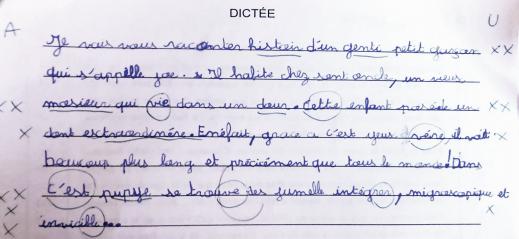 DICTÉE
A U
Je vais vous raconter histoir d'un genti petit garçon xx
qui s'appelle joe. Il habite chez sont oncle, un vieux
xx mosieur qui vie dans un deux. Cette enfant posède un xx
x dont esctraordinère. Enéfait, grace a c'est yeux vère, il voit x
beaucoup plus long et précicément que tous le monde! Dans
xx c'est pupije se trouve des jumelle intégrer, migroscopique et
x invicible... x
x